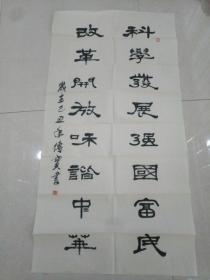 科學發展強國富民
改革開放和諧中華
歲在己丑年傳寶書